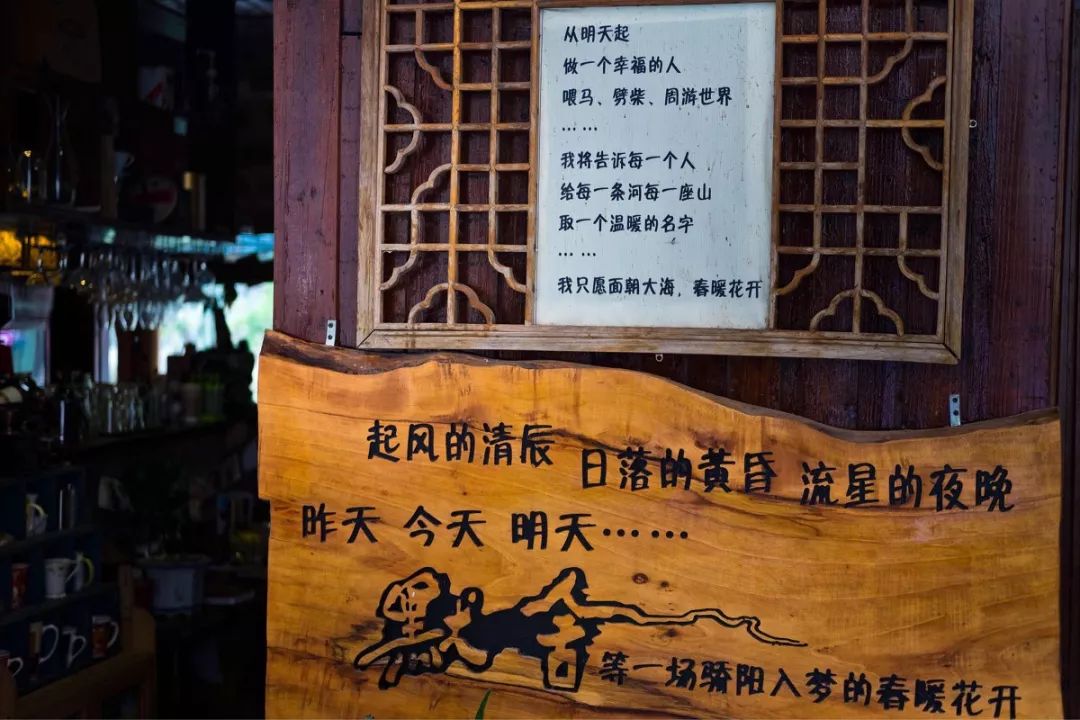 从明天起
做一个幸福的人
喂马、劈柴、周游世界
……
我将告诉每一个人
给每一条河每一座山
取一个温暖的名字
……
我只愿面朝大海，春暖花开
起风的清辰 日落的黄昏 流星的夜晚
昨天 今天 明天……
默舍 等一场骄阳入梦的春暖花开